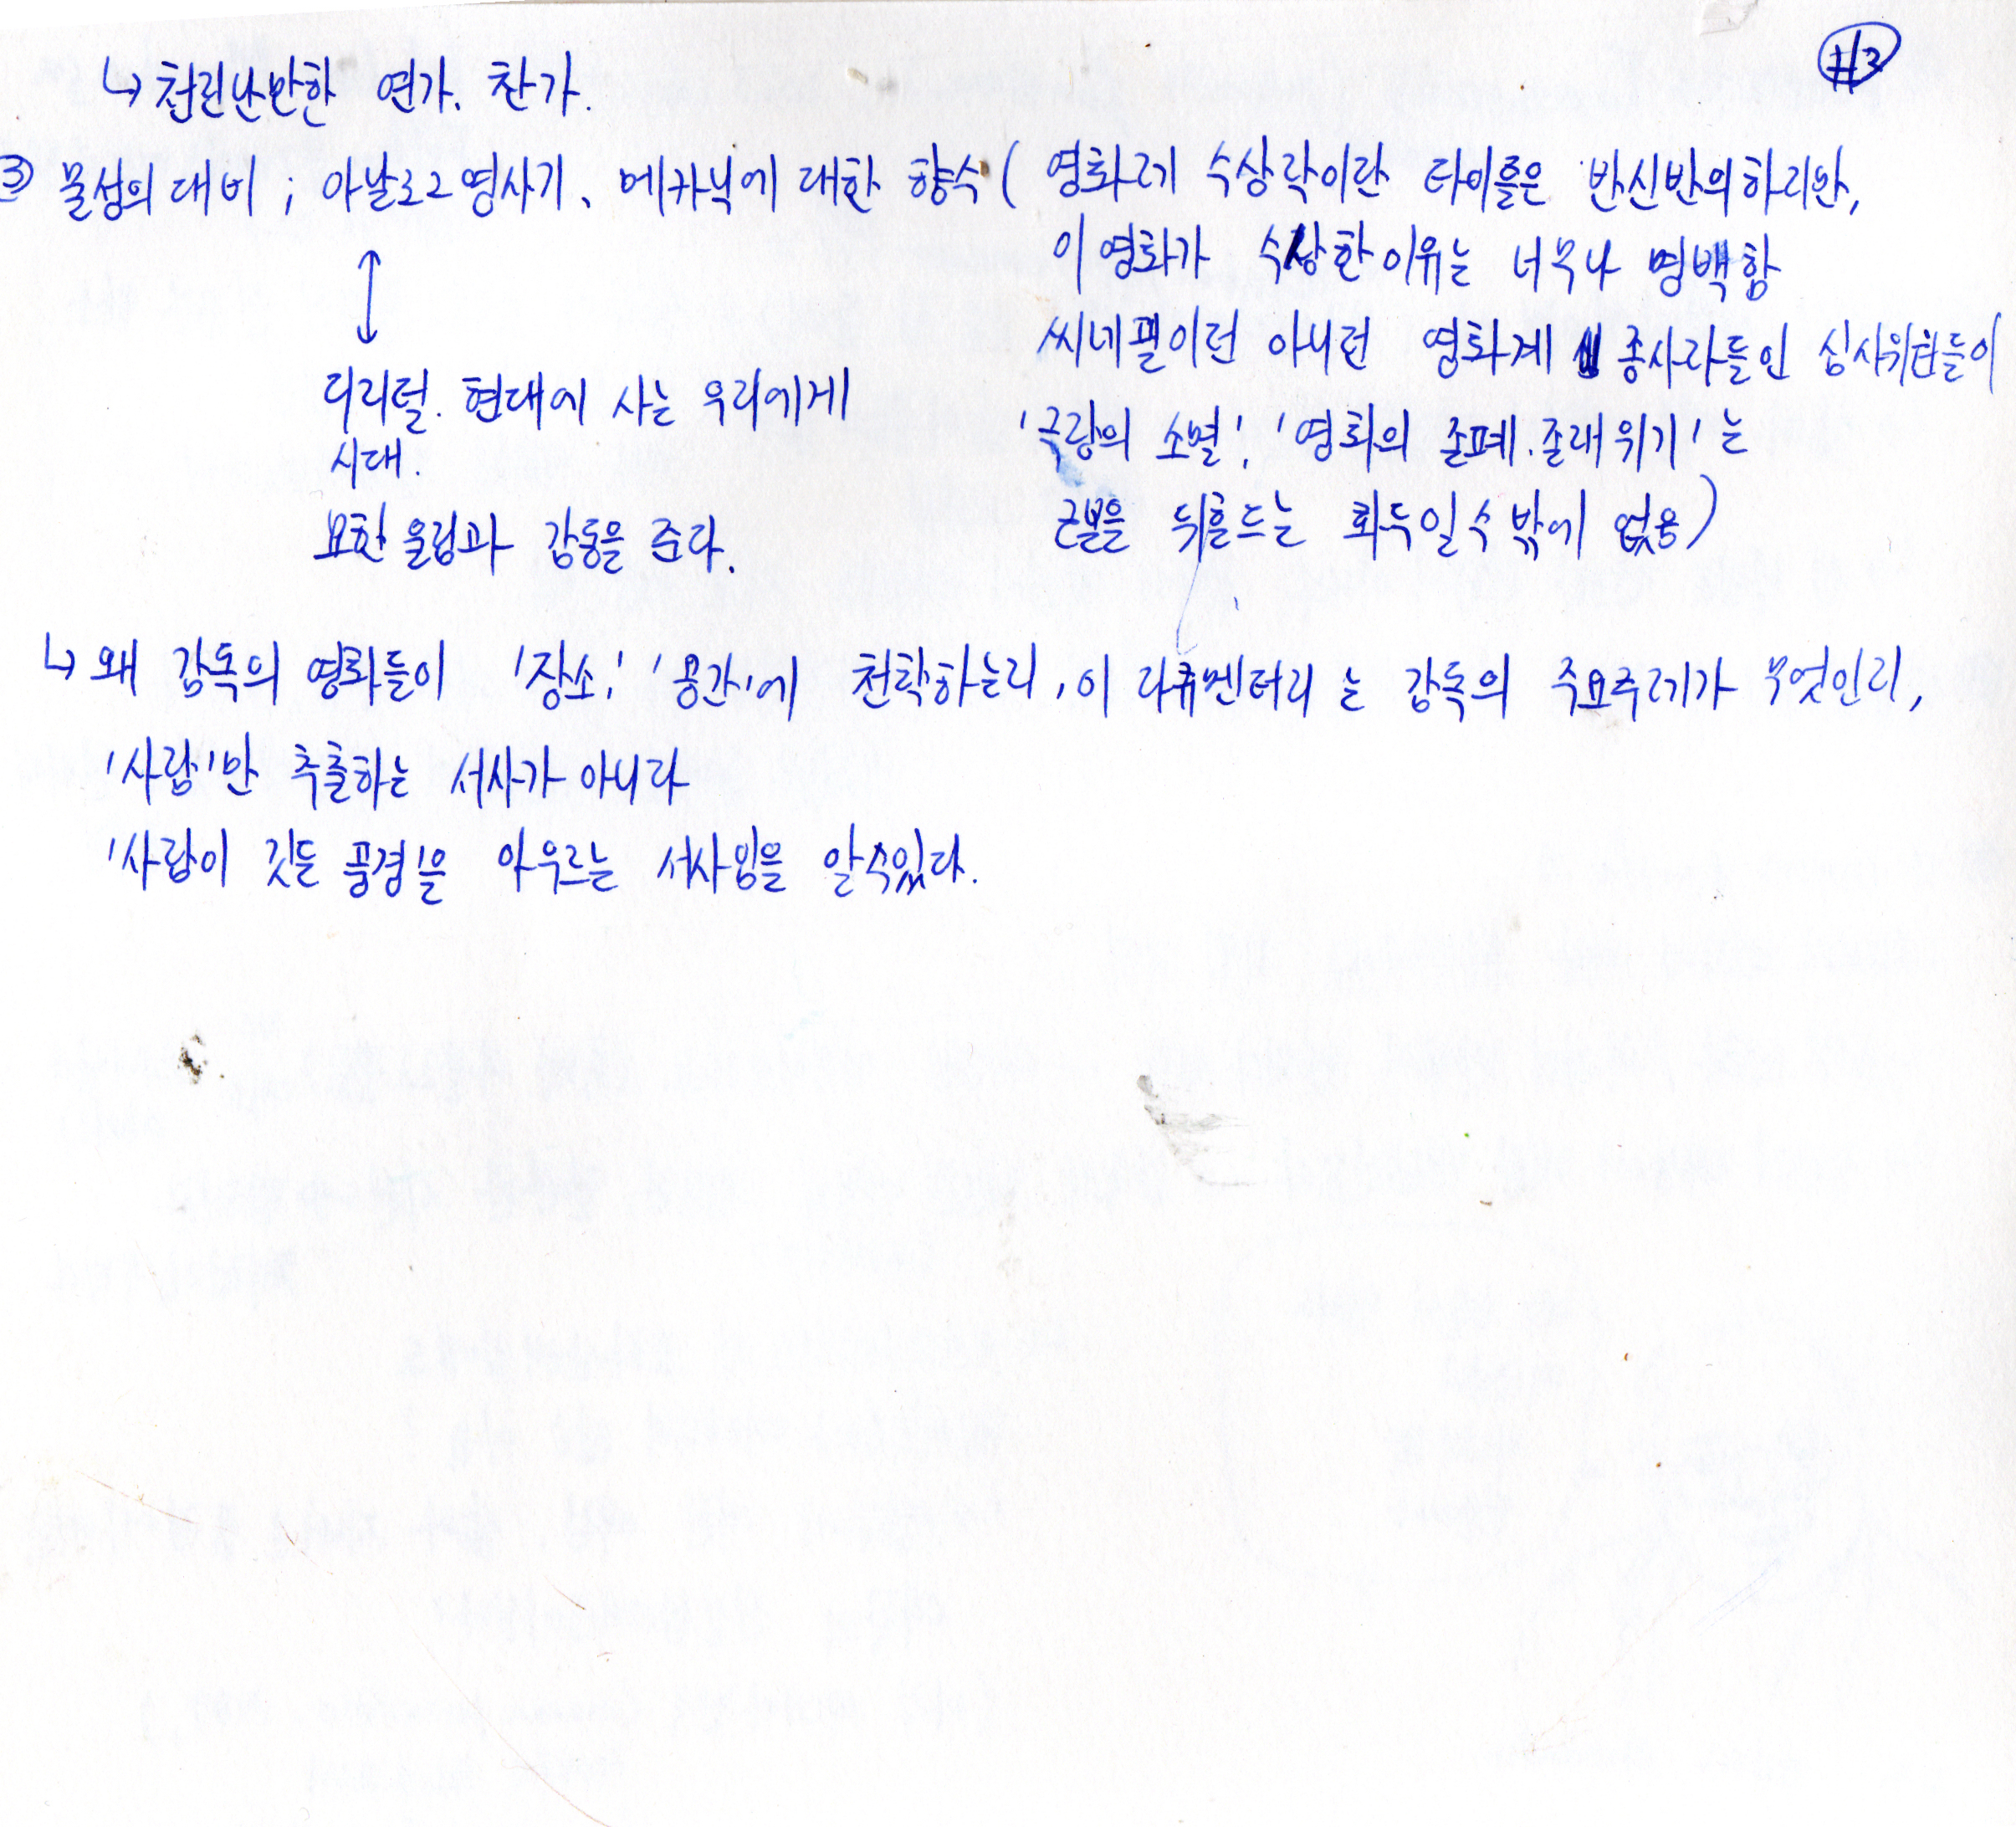 #3
↳ 천진난만한 연가. 찬가.
③ 물성의 대비 ; 아날로그 영사기、메카닉에 대한 향수 ( 영화제 수상작이란 타이틀은 반신반의하지만,
이 영화가 수상한 이유는 너무나 명백함
씨네필이던 아니던 영화계 종사자들인 심사위원들이
'극장의 소멸', '영화의 존폐.존재 위기'는
근본을 뒤흔드는 화두일 수 밖에 없음)
↕
디지털. 현대에 사는 우리에게
시대.
묘한 울림과 감동을 준다.
↳ 왜 감독의 영화들이 '장소', '공간'에 천착하는지, 이 다큐멘터리 는 감독의 주요주제가 무엇인지,
'사람'만 추출하는 서사가 아니라
'사람이 깃든 풍경'을 아우르는 서사임을 알 수 있다.